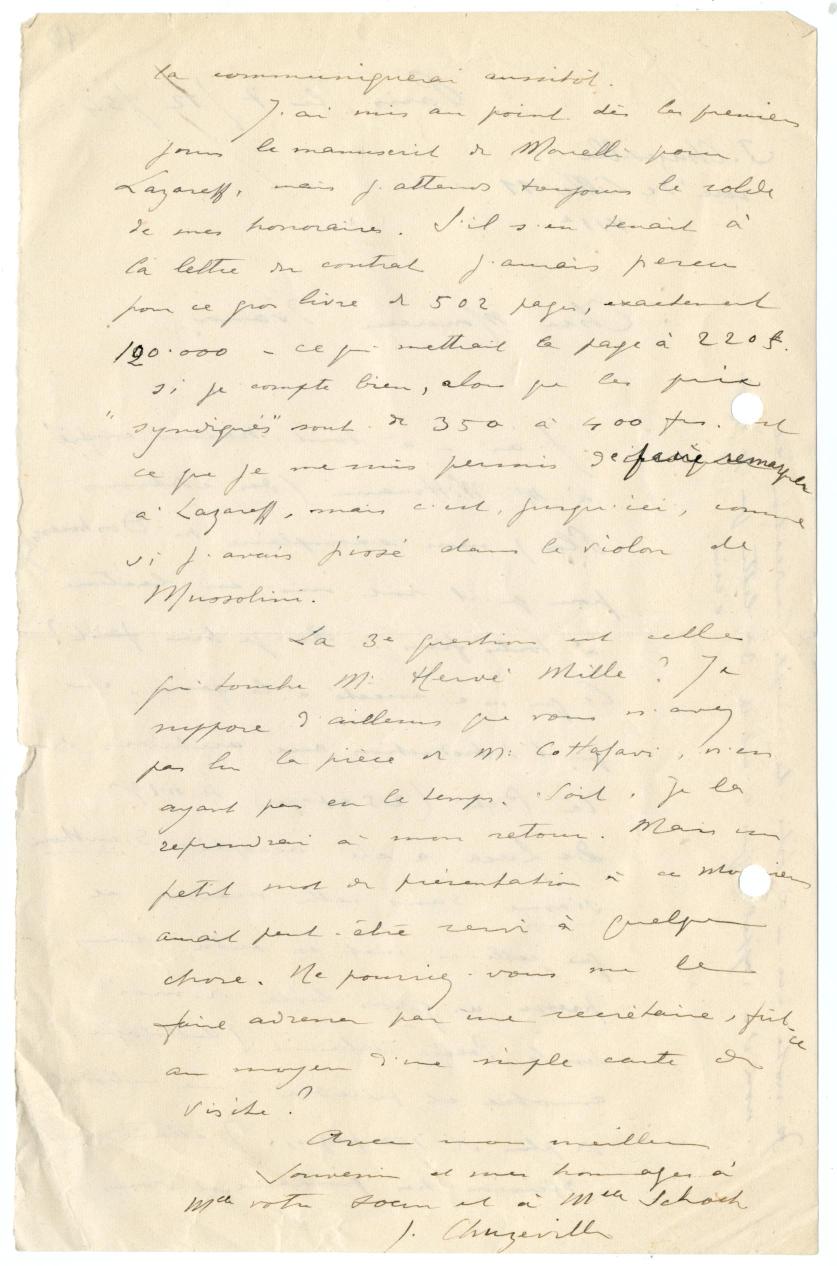 la communiquerai aussitôt.
J'ai mis au point dès les premiers
jours le manuscrit de Monelli pour
Lazareff, mais j'attends toujours le solde
de mes honoraires. S'il s'en tenait à
la lettre du contrat j'aurais perçu
pour ce gros livre de 502 pages, exactement
120.000 – ce qui mettrait la page à 220 f.
si je compte bien, alors que les prix
"syndiqués" sont de 350 à 400 frs. est
ce que je me suis permis de faire remarquer
à Lazareff, mais c'est, jusqu'ici, comme
si j'avais pissé dans le violon de
Mussolini.
La 3e question est celle
qui touche Mr Hervé Mille ? Je
suppose d'ailleurs que vous n'avez
pas lu la pièce de Mr Cottafavi, n'en
ayant pas eu le temps. Soit. Je la
reprendrai à mon retour. Mais un
petit mot de présentation à ce
aurait peut-être servi à quelque
chose. Ne pourriez-vous me le
faire adresser par une secrétaire, fût-ce
au moyen d'une simple carte de
visite ?
Avec mon meilleur
souvenir et mes hommages à
Melle votre soeur et à Melle Schoch
J. Chuzeville